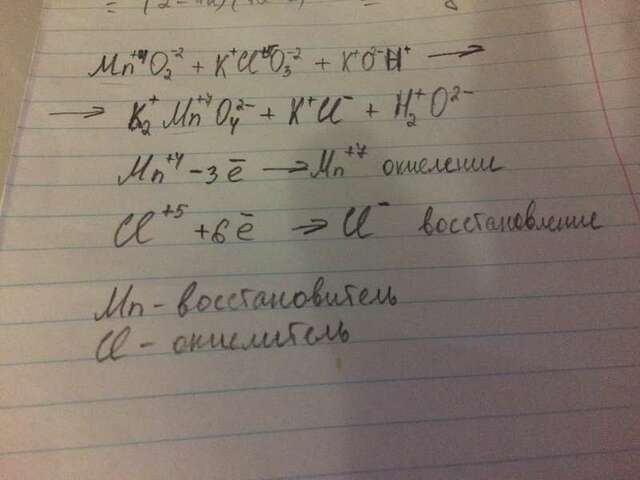 Mn⁺⁴O₂⁻² + K⁺Cl⁺⁵O₃⁻² + K⁺O²⁻H⁺ →
→ K₂⁺Mn⁺⁷O₄²⁻ + K⁺Cl⁻ + H₂⁺O²⁻
Mn⁺⁴ - 3ē → Mn⁺⁷ окисление
Cl⁺⁵ + 6ē → Cl⁻ восстановление
Mn - восстановитель
Cl - окислитель